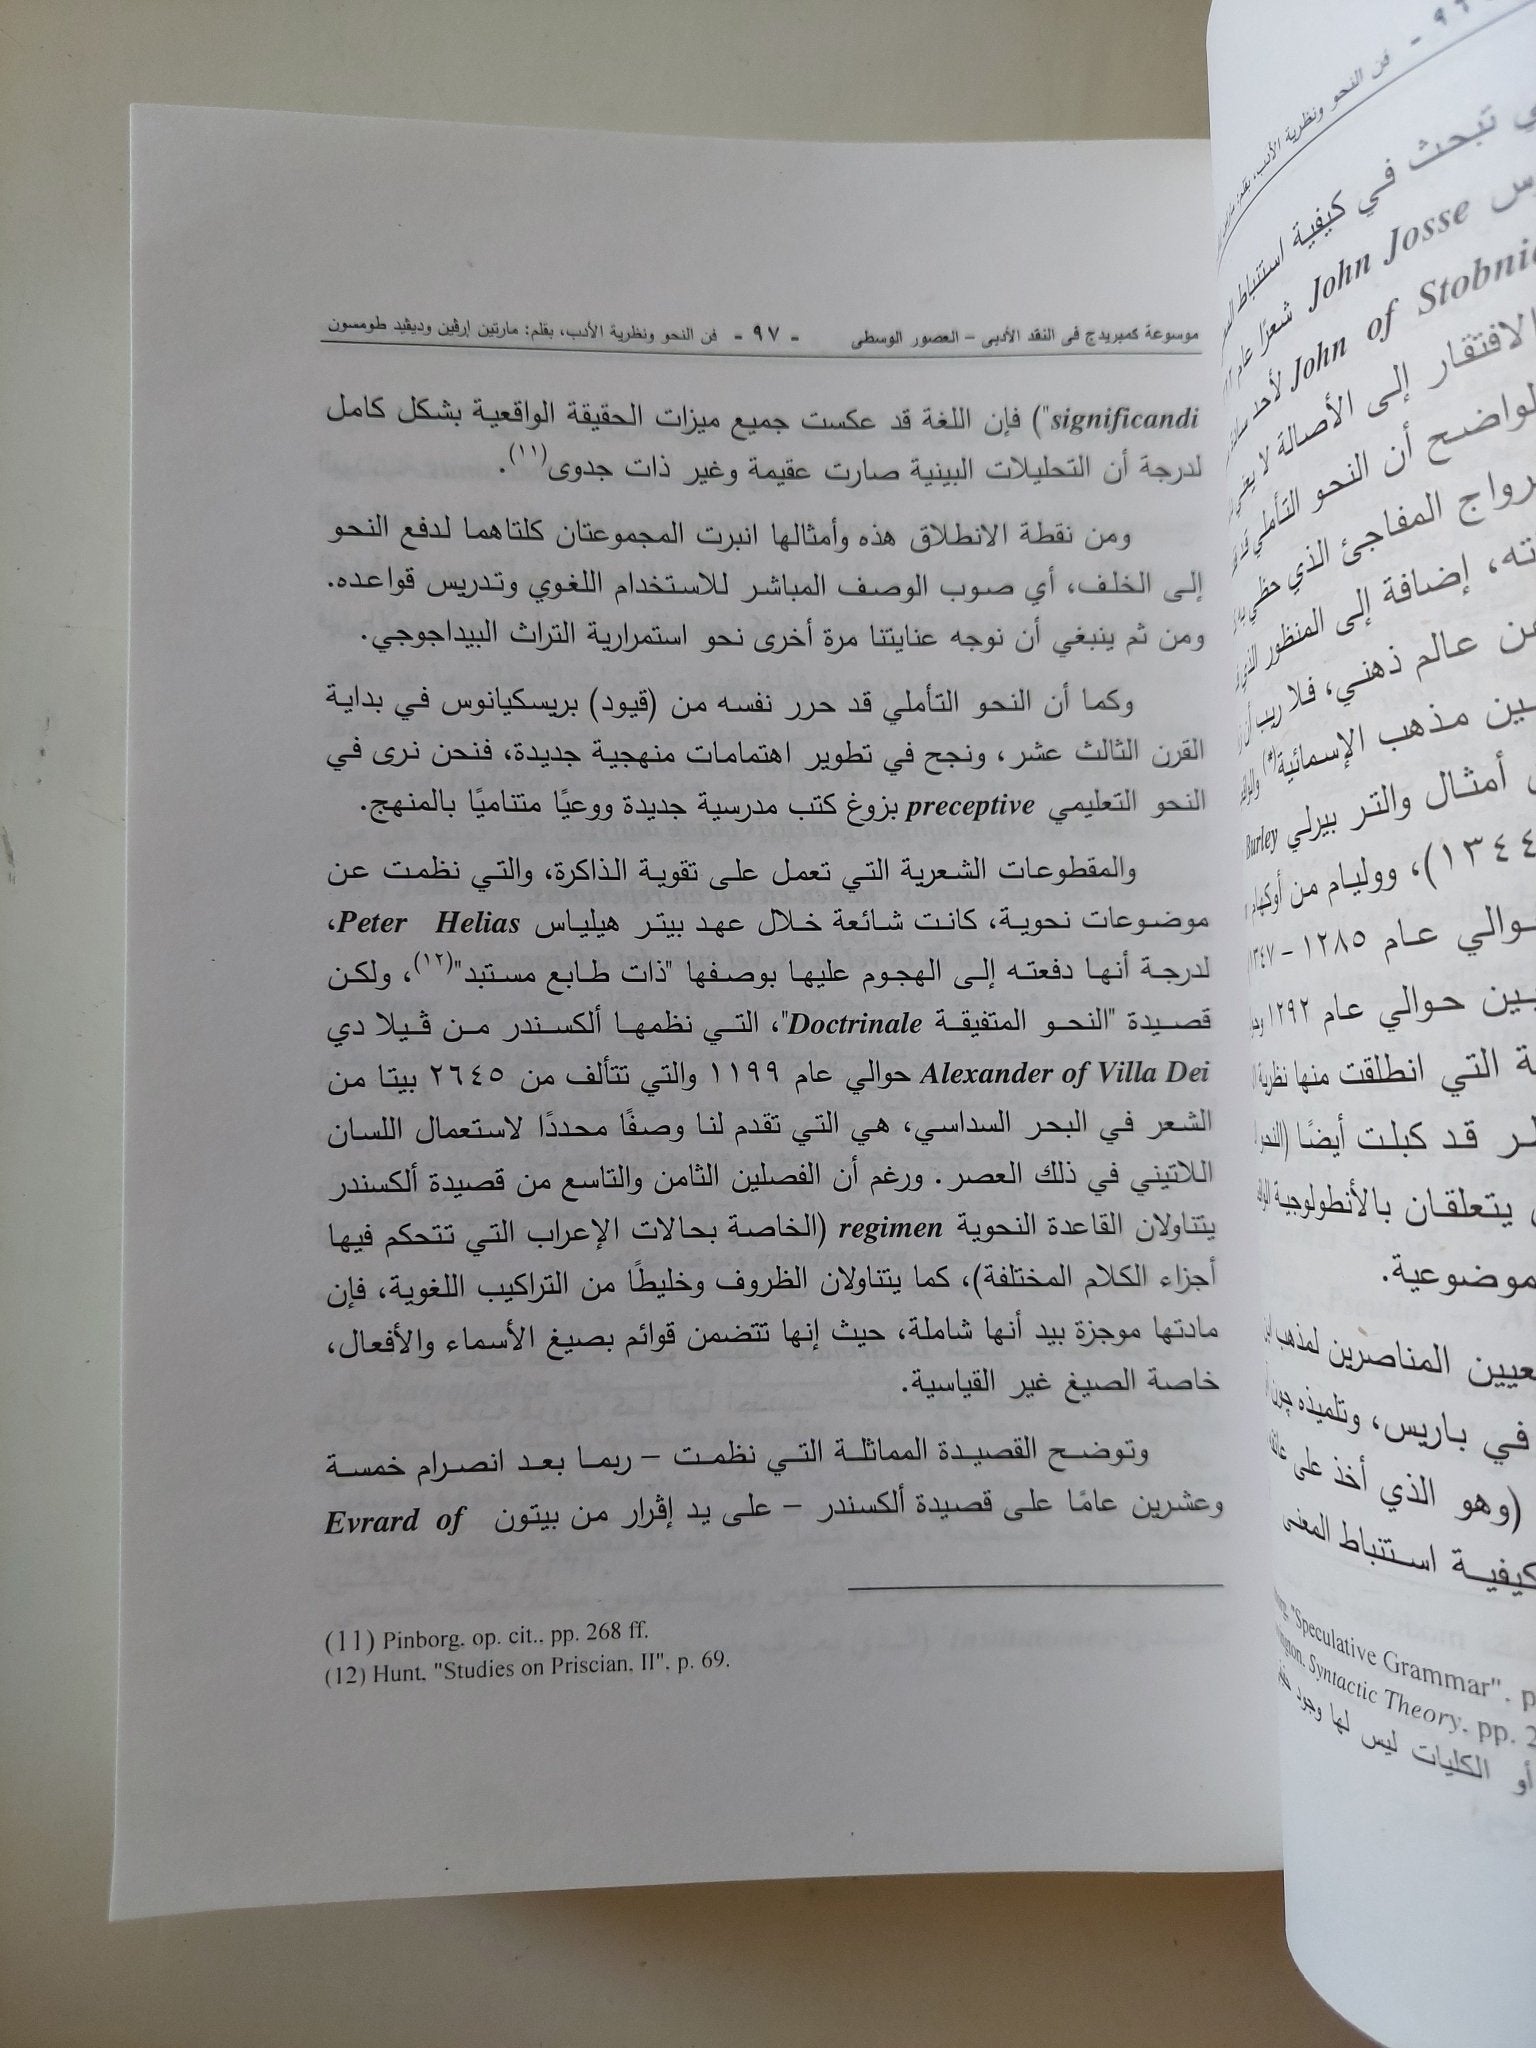 موسوعة كمبريدج فى النقد الأدبى – العصور الوسطى - ٩٧ - فن النحو ونظرية الأدب، بقلم: مارتين إرڤين وديڤيد طومسون
significandi") فإن اللغة قد عكست جميع ميزات الحقيقة الواقعية بشكل كامل
لدرجة أن التحليلات البينية صارت عقيمة وغير ذات جدوى(١١).
ومن نقطة الانطلاق هذه وأمثالها انبرت المجموعتان كلتاهما لدفع النحو
إلى الخلف، أي صوب الوصف المباشر للاستخدام اللغوي وتدريس قواعده.
ومن ثم ينبغي أن نوجه عنايتنا مرة أخرى نحو استمرارية التراث البيداجوجي.
وكما أن النحو التأملي قد حرر نفسه من (قيود) بريسكيانوس في بداية
القرن الثالث عشر، ونجح في تطوير اهتمامات منهجية جديدة، فنحن نرى في
النحو التعليمي preceptive بزوغ كتب مدرسية جديدة ووعيًا متناميًا بالمنهج.
والمقطوعات الشعرية التي تعمل على تقوية الذاكرة، والتي نظمت عن
موضوعات نحوية، كانت شائعة خلال عهد بيتر هيلياس Peter Helias،
لدرجة أنها دفعته إلى الهجوم عليها بوصفها "ذات طابع مستبد"(١٢)، ولكن
قصيدة "النحو المتفيقة Doctrinale"، التي نظمها ألكسندر من ڤيلا دي
Alexander of Villa Dei حوالي عام ١١٩٩ والتي تتألف من ٢٦٤٥ بيتا من
الشعر في البحر السداسي، هي التي تقدم لنا وصفًا محددًا لاستعمال اللسان
اللاتيني في ذلك العصر. ورغم أن الفصلين الثامن والتاسع من قصيدة ألكسندر
يتناولان القاعدة النحوية regimen (الخاصة بحالات الإعراب التي تتحكم فيها
أجزاء الكلام المختلفة)، كما يتناولان الظروف وخليطًا من التراكيب اللغوية، فإن
مادتها موجزة بيد أنها شاملة، حيث إنها تتضمن قوائم بصيغ الأسماء والأفعال،
خاصة الصيغ غير القياسية.
وتوضح القصيدة المماثلة التي نظمت – ربما بعد انصرام خمسة
وعشرين عامًا على قصيدة ألكسندر – على يد إڤرار من بيتون Evrard of
(11) Pinborg, op. cit., pp. 268 ff.
(12) Hunt, "Studies on Priscian, II", p. 69.
فن النحو ونظرية الأدب، بقلم:
تبحث في كيفية استنباط
John Josse شعرًا عام
John of Stobnic لأحد
الافتقار إلى الأصالة لا
الواضح أن النحو التأملي
رواج المفاجئ الذي حظي به
إضافة إلى المنظور الذي
عالم ذهني، فلا ريب أن
مذهب الإسمائية(*)
أمثال والتر بيرلي Burley
١٣٤٤)، ووليام من أوكهام
حوالي عام ١٢٨٥ - ١٣٤٧
حوالي عام ١٢٩٢
التي انطلقت منها نظرية
قد كبلت أيضًا (النحو
يتعلقان بالأنطولوجية
موضوعية.
المناصرين لمذهب
في باريس، وتلميذه چون
(وهو الذي أخذ على
كيفية استنباط المعنى
"Speculative Grammar", p
Syntactic Theory, pp. 2
أو الكليات ليس لها وجود